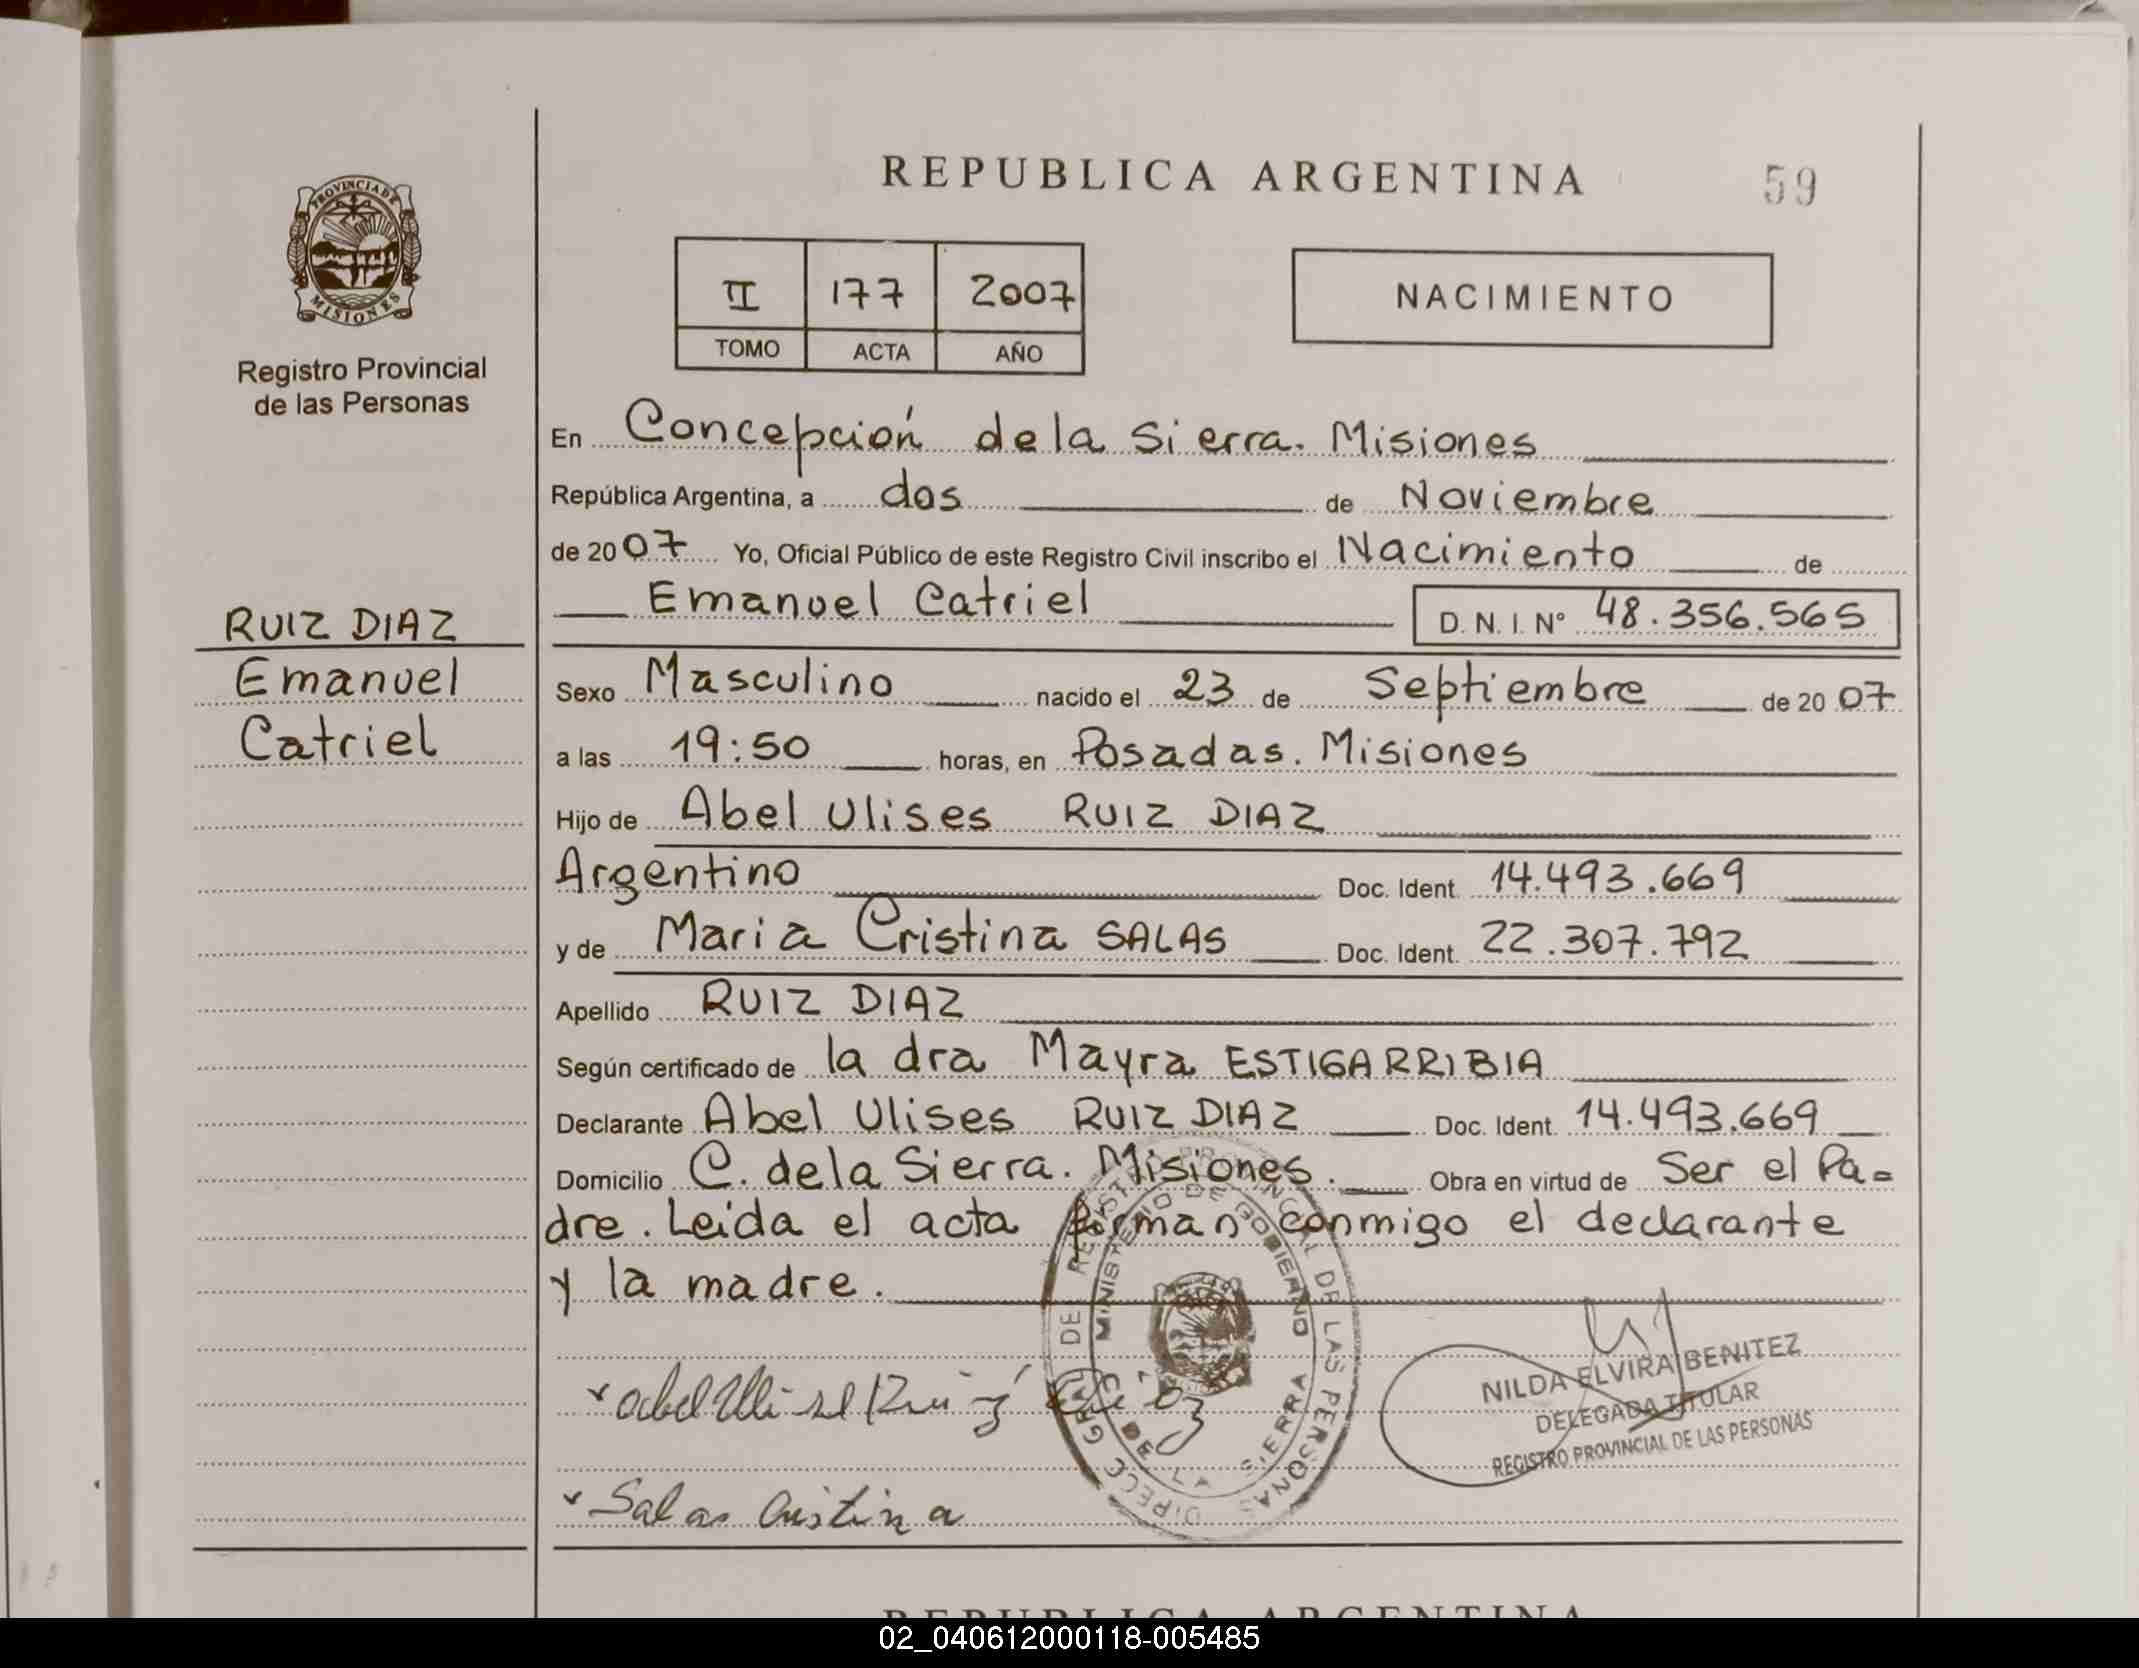 REPUBLICA ARGENTINA
59
PROVINCIA DE MISIONES
Registro Provincial
de las Personas
II 177 2007
TOMO ACTA AÑO
NACIMIENTO
En Concepción de la Sierra. Misiones
República Argentina, a dos de Noviembre
de 2007 Yo, Oficial Público de este Registro Civil inscribo el Nacimiento de
Emanuel Catriel D.N.I. Nº 48.356.565
RUIZ DIAZ
Emanuel
Catriel
Sexo Masculino nacido el 23 de Septiembre de 2007
a las 19:50 horas, en Posadas. Misiones
Hijo de Abel Ulises RUIZ DIAZ
Argentino Doc. Ident. 14.493.669
y de Maria Cristina SALAS Doc. Ident. 22.307.792
Apellido RUIZ DIAZ
Según certificado de la dra Mayra ESTIGARRIBIA
Declarante Abel Ulises RUIZ DIAZ Doc. Ident. 14.493.669
Domicilio C. de la Sierra. Misiones. Obra en virtud de Ser el Pa=
dre. Leida el acta firman conmigo el declarante
y la madre.
DIRECC GRAL DE REGISTRO PROVINCIAL DE LAS PERSONAS
MINISTERIO DE GOBIERNO
DE LA SIERRA
NILDA ELVIRA BENITEZ
DELEGADA TITULAR
REGISTRO PROVINCIAL DE LAS PERSONAS
Salas Cristina
REPUBLICA ARGENTINA
02_040612000118-005485